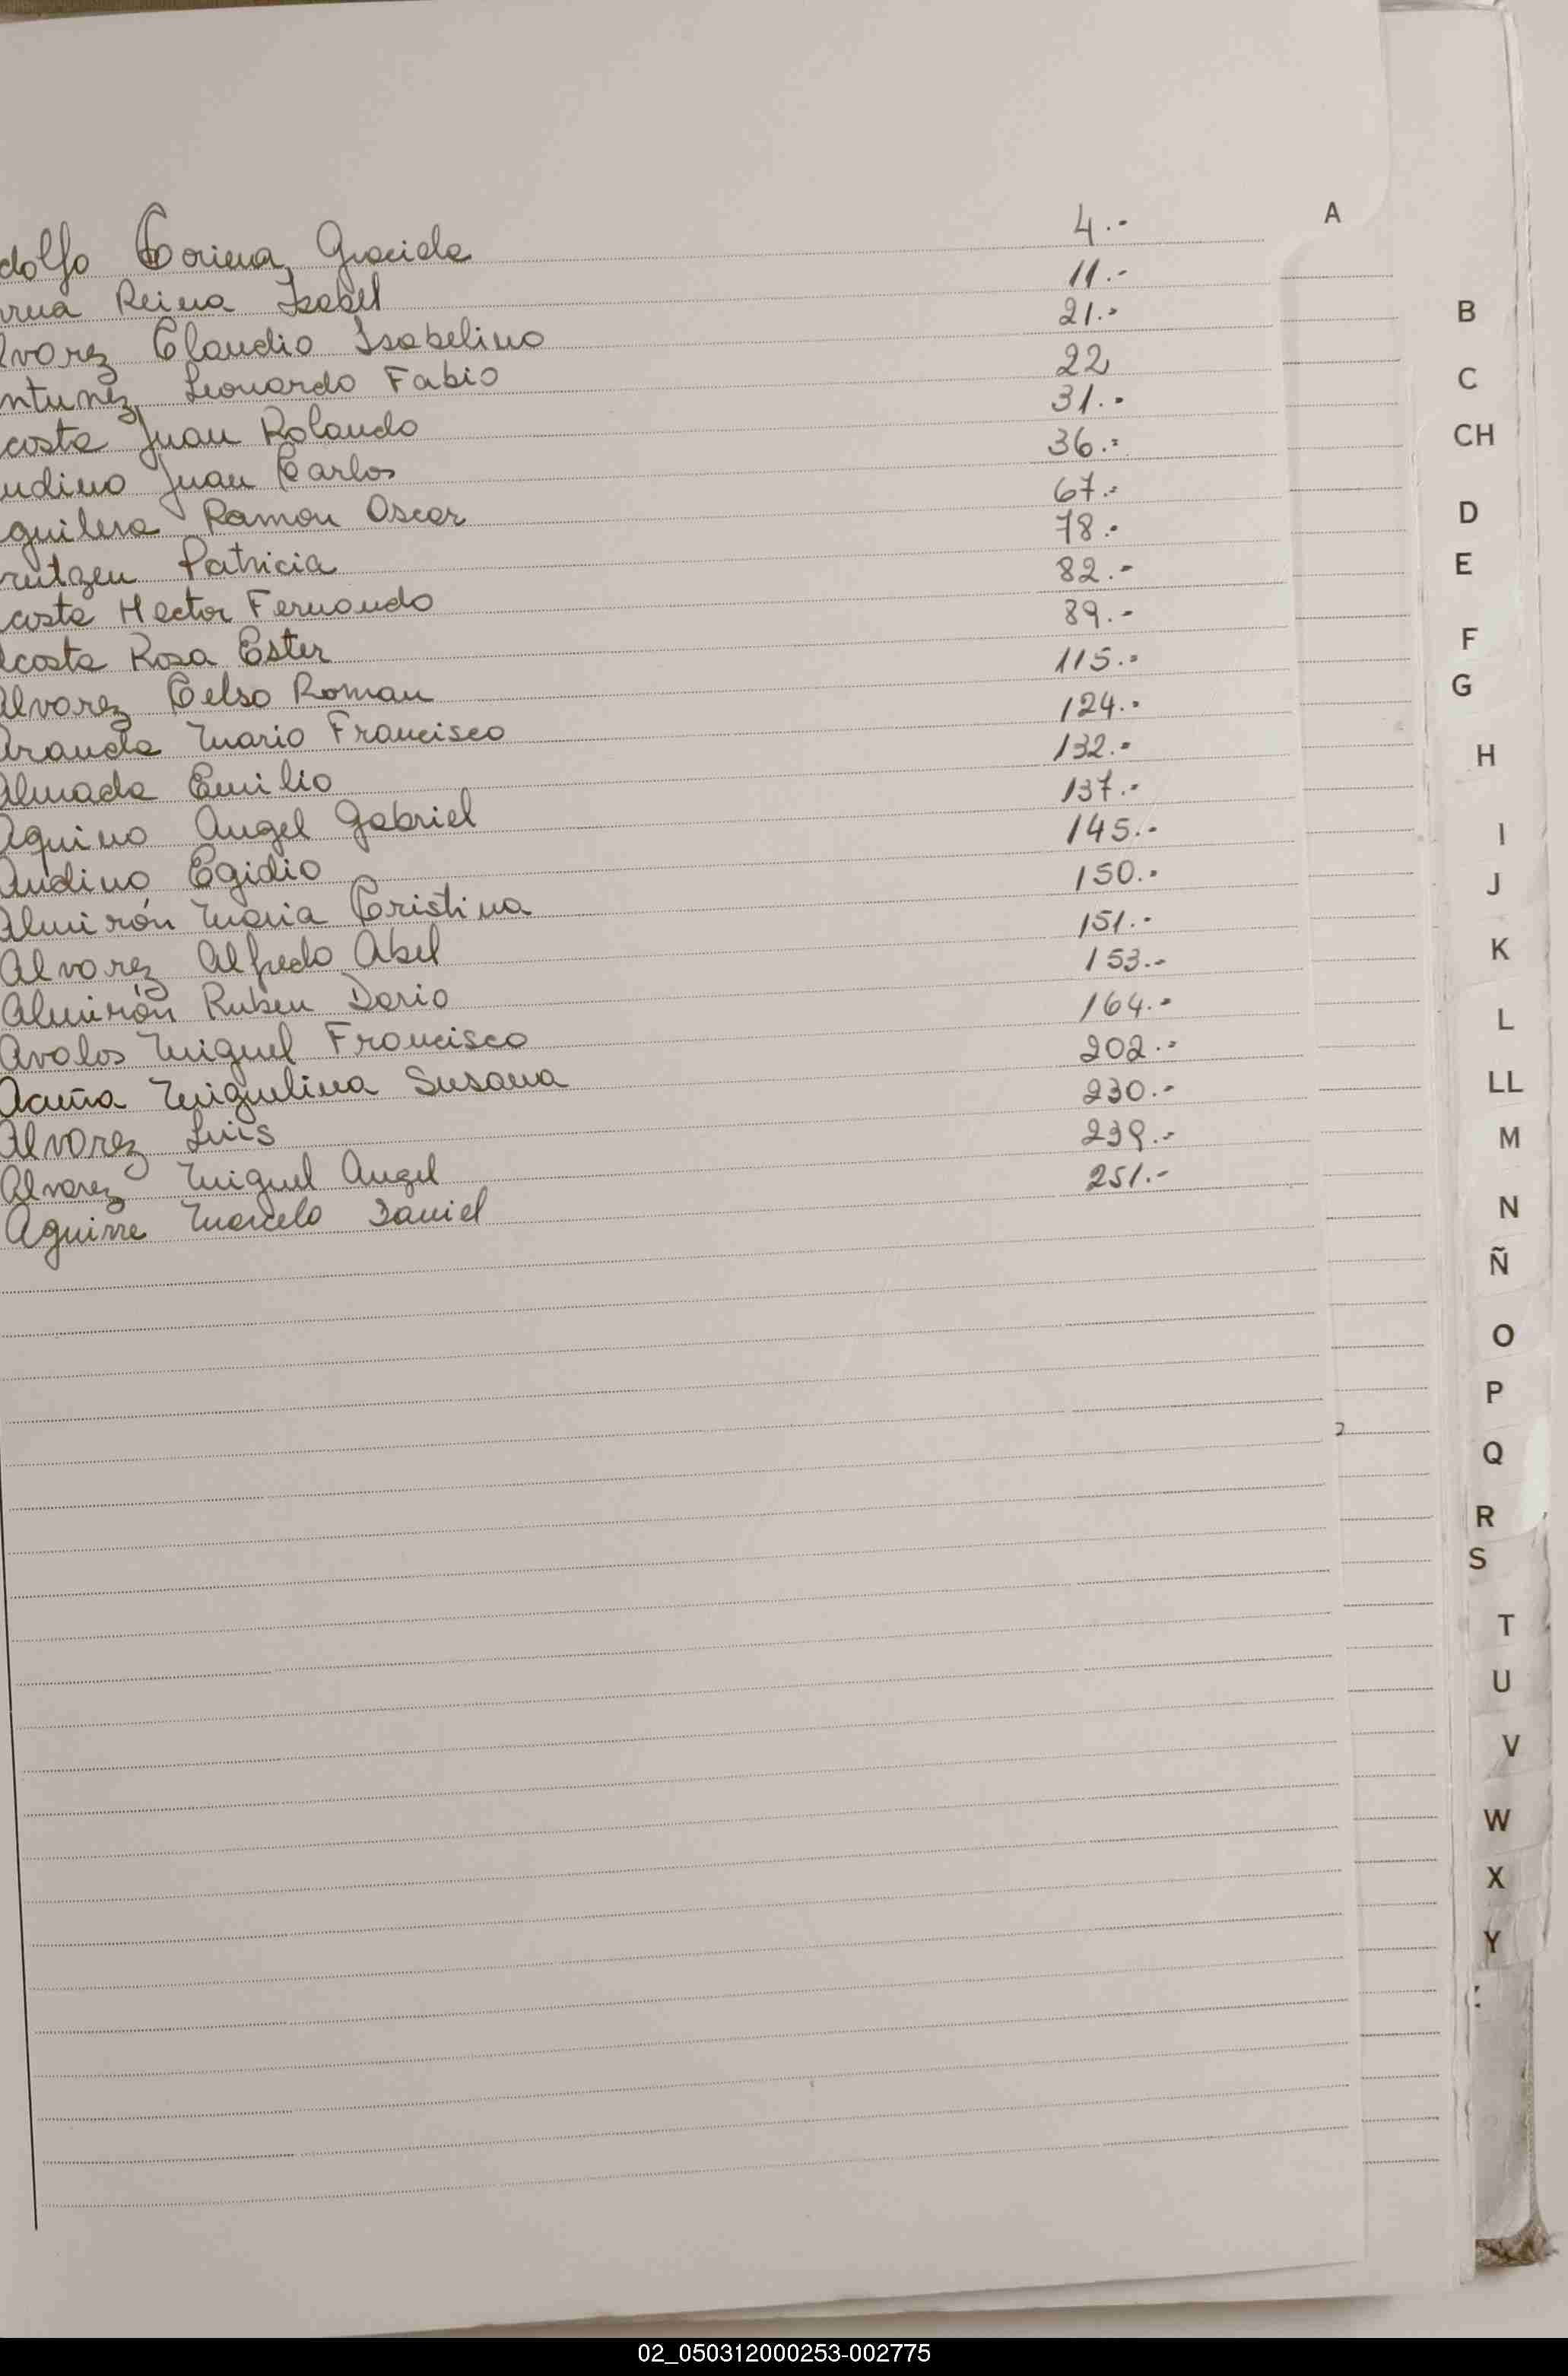 dolfo Corina Graciela 4.-
rrua Reina Isabel 11.-
lvarez Claudio Isabelino 21.-
ntunez Leonardo Fabio 22
costa Juan Rolando 31.-
udino Juan Carlos 36.-
guilera Ramon Oscar 67.-
rutzen Patricia 78.-
costa Hector Fernando 82.-
Acosta Rosa Ester 89.-
Alvarez Celso Roman 115.-
Aranda Mario Francisco 124.-
Almada Emilio 132.-
Aquino Angel Gabriel 137.-
Audino Egidio 145.-
Almirón Maria Cristina 150.-
Alvarez Alfredo Abel 151.-
Almirón Ruben Dario 153.-
Avalos Miguel Francisco 164.-
Acuña Miguelina Susana 202.-
Alvarez Luis 230.-
Alvarez Miguel Angel 239.-
Aguirre Marcelo Daniel 251.-
A
B
C
CH
D
E
F
G
H
I
J
K
L
LL
M
N
Ñ
O
P
Q
R
S
T
U
V
W
X
Y
02_050312000253-002775